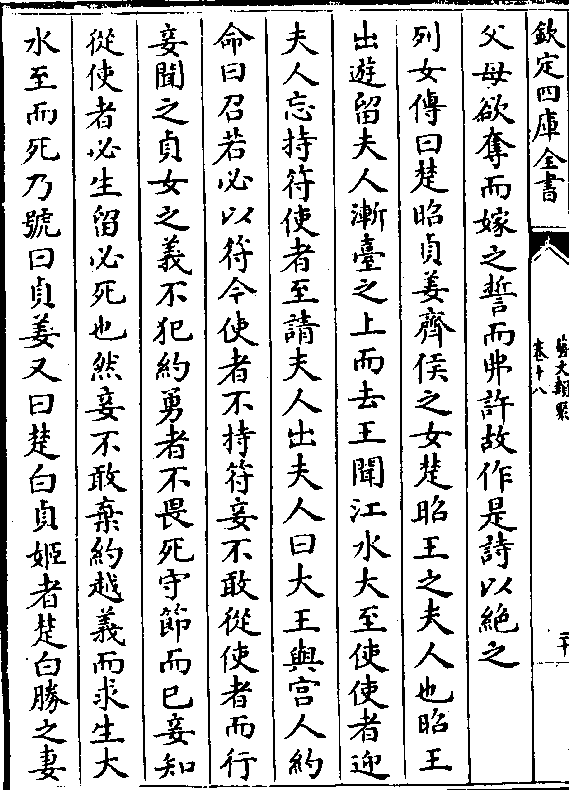 欽定四庫全書
藝文類聚
卷十八
二十
父母欲奪而嫁之誓而弗許故作是詩以絶之
列女傳曰楚昭貞姜齊侯之女楚昭王之夫人也昭王
出遊留夫人漸臺之上而去王聞江水大至使使者迎
夫人忘持符使者至請夫人出夫人曰大王與宫人約
命曰召若必以符今使者不持符妾不敢從使者而行
妾聞之貞女之義不犯約勇者不畏死守節而已妾知
從使者必生留必死也然妾不敢棄約越義而求生大
水至而死乃號曰貞姜又曰楚白貞姬者楚白勝之妻